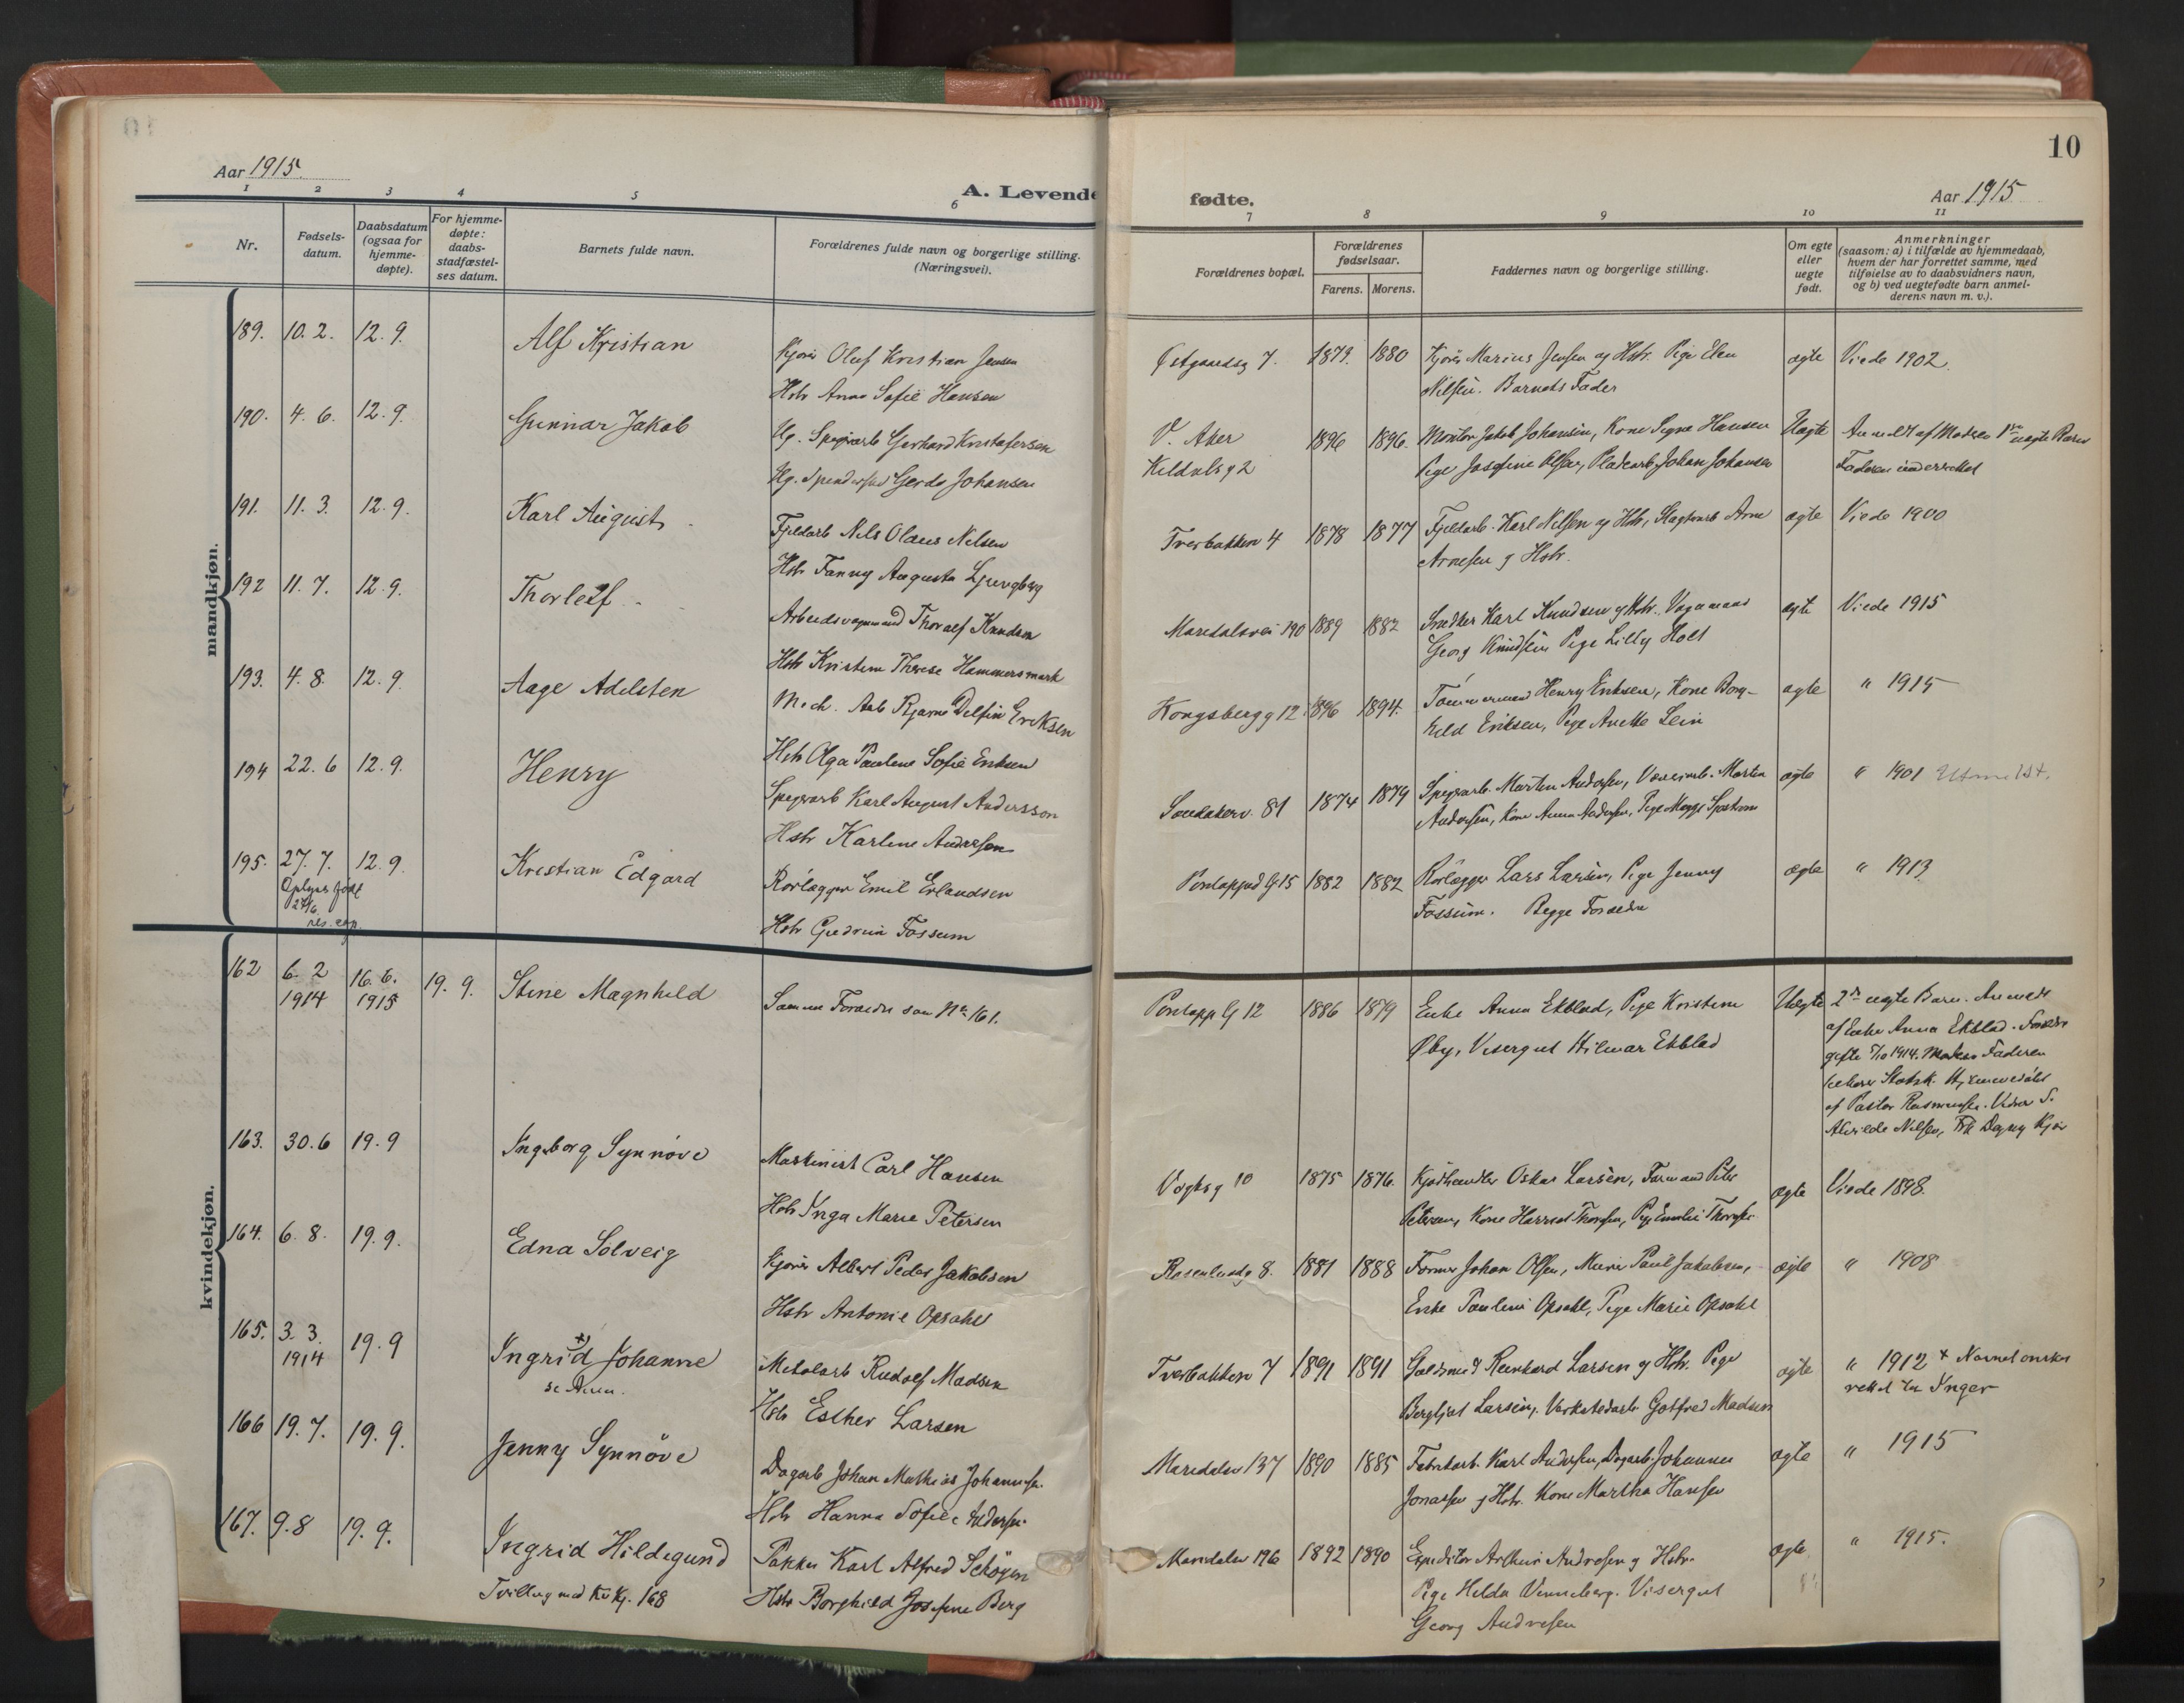 10
Aar 1915.
A. Levende fødte.
Aar 1915
1 2 3 4 5 6 7 8 9 10 11
Nr.
Fødsels-
datum.
Daabsdatum
(ogsaa for
hjemme-
døpte).
For hjemme-
døpte:
daabs-
stadfæstel-
ses datum.
Barnets fulde navn.
Forældrenes fulde navn og borgerlige stilling.
(Næringsvei).
Forældrenes bopæl.
Forældrenes
fødselsaar.
Farens. Morens.
Faddernes navn og borgerlige stilling.
Om egte
eller
uegte
født.
Anmerkninger
(saasom: a) i tilfælde av hjemmedaab,
hvem der har forrettet samme, med
tilføielse av to daabsvidners navn,
og b) ved uegtefødte barn anmel-
derens navn m. v.).
mandkjøn.
189. 10. 2. 12. 9. Alf Kristian
Kjører Oluf Kristian Jensen
Hstr Anna Sofie Hansen
Østgaardsg 7. 1879. 1880
Kjører Marius Jensen og Hstr. Pige Elen
Nilsen. Barnets Fader
ægte Viede 1902.
190. 4. 6. 12. 9. Gunnar Jakob
Ug. Spigerarb Gerhard Kristofersen
Ug. Gerda Johansen
V. Aker
1896 1896.
Montør Jakob Johansen, Kone Signe Hansen
Pige Josefine Olsen, Pladearb. Johan Johansen
Uægte Anmeldt af Moderen 1ste uægte Barn
Faderen underrettet
191. 11. 3. 12. 9. Karl August
Fjeldarb Nils Olaus Nilsen
Hstr Fanny Augusta Ljungberg
Tverbakken 4 1878 1877
Fjeldarb. Karl Nilsen og Hstr, Slagterarb Arne
Arnesen g Hstr.
ægte Viede 1900
192 11. 7. 12. 9. Thorleif
Arbeidsvognmand Thoralf Knudsen
Hstr Kristine Therese Hammersmark
Maridalsvei 190 1889 1882
Snedker Karl Knudsen g Hstr. Vognmand
Georg Knudsen Pige Lilly Holt
ægte Viede 1915
193. 4. 8. 12. 9. Aage Adelsten
Mech. Arb Bjarne Delfin Eriksen
Hstr Olga Pauline Sofie Eriksen
Kongsbergg 12 1896 1894.
Tømmermand Henry Eriksen, Kone Borg-
hild Eriksen, Pige Anette Lein
ægte " 1915
194 22. 6 12. 9. Henry
Spigerarb Karl August Andersson
Hstr Karline Andresen
Sandakerv. 81 1874 1879
Spigerarb. Martin Andersen, Væverarb. Martin
Andersen, Kone Anna Andersen, Pige Magge Sjøstrøm
ægte " 1901 Utmeldt.
195. 27. 7. 12. 9. Kristian Edgard
Oplyses født
27/6
Rørlægger Emil Erlandsen
Hstr Gudrun Fossum
15 1882 1882
Rørlægger Lars Larsen, Pige Jenny
Fossum. Begge Forældre
ægte " 1913
kvindekjøn.
162 6. 2 16. 6. 19. 9. Stine Magnhild
1914 1915
Samme Forældre som No 161.
G 12 1886 1879
Enke Anna Ekblad, Pige Kristine
Øby, Visergut Hilmar Ekblad
Uægte 2det uægte Barn. Anmeldt
af Enke Anna Ekblad. Forældre
gifte 7/10 1914. Faderen
tilhører Statsk. Hjemmedøbt
af Pastor Rasmussen. Vidner S.
Alvilde Nilsen, Frk Dagny Kjær
163. 30. 6 19. 9 Ingeborg Synnøve
Maskinist Carl Hansen
Hstr Inga Marie Petersen
Vogtsg 10 1875 1876.
Kjødhandler Oskar Larsen, Formand Peter
Petersen, Kone Harriet Thoresen, Pige Emilie Thoresen
ægte Viede 1898.
164. 6. 8. 19. 9. Edna Solveig
Kjører Albert Peder Jakobsen
Hstr Antonie Opsahl
Rosenlundg 8. 1881 1888
Former Johan Olsen, Murer Paul Jakobsen,
Enke Pauline Opsahl, Pige Marie Opsahl
ægte " 1908
165. 3. 3. 19. 9 Ingrid x) Johanne
1914 se Anm.
Metalarb Rudolf Madsen
Hstr Esther Larsen
Tverbakken 7 1891 1891
Guldsmed Reinhard Larsen g Hstr. Pige
Bergljot Larsen, Verkstedarb Gotfred Madsen
ægte " 1912 x Navnet ønskes
rettet til Inger
166 19. 7. 19. 9. Jenny Synnøve
Dagarb Johan Mathias Johannesen.
Hstr Hanna Sofie Andersen.
Maridalsv 137 1890 1885
Fabrikarb. Karl Andersen, Dagarb Johannes
Jonassen g Hstr. Kone Martha Hansen
ægte " 1915
167. 9. 8 19. 9. Ingrid Hildegund
Tvilling med Kv Kj. 168
Pakker Karl Alfred Schøyen
Hstr Borghild Josefine Berg
Maridalsv 196 1892 1890
Expeditør Arthur Andresen g Hstr.
Pige Helda Venneberg. Visergut
Georg Andresen
ægte " 1915.